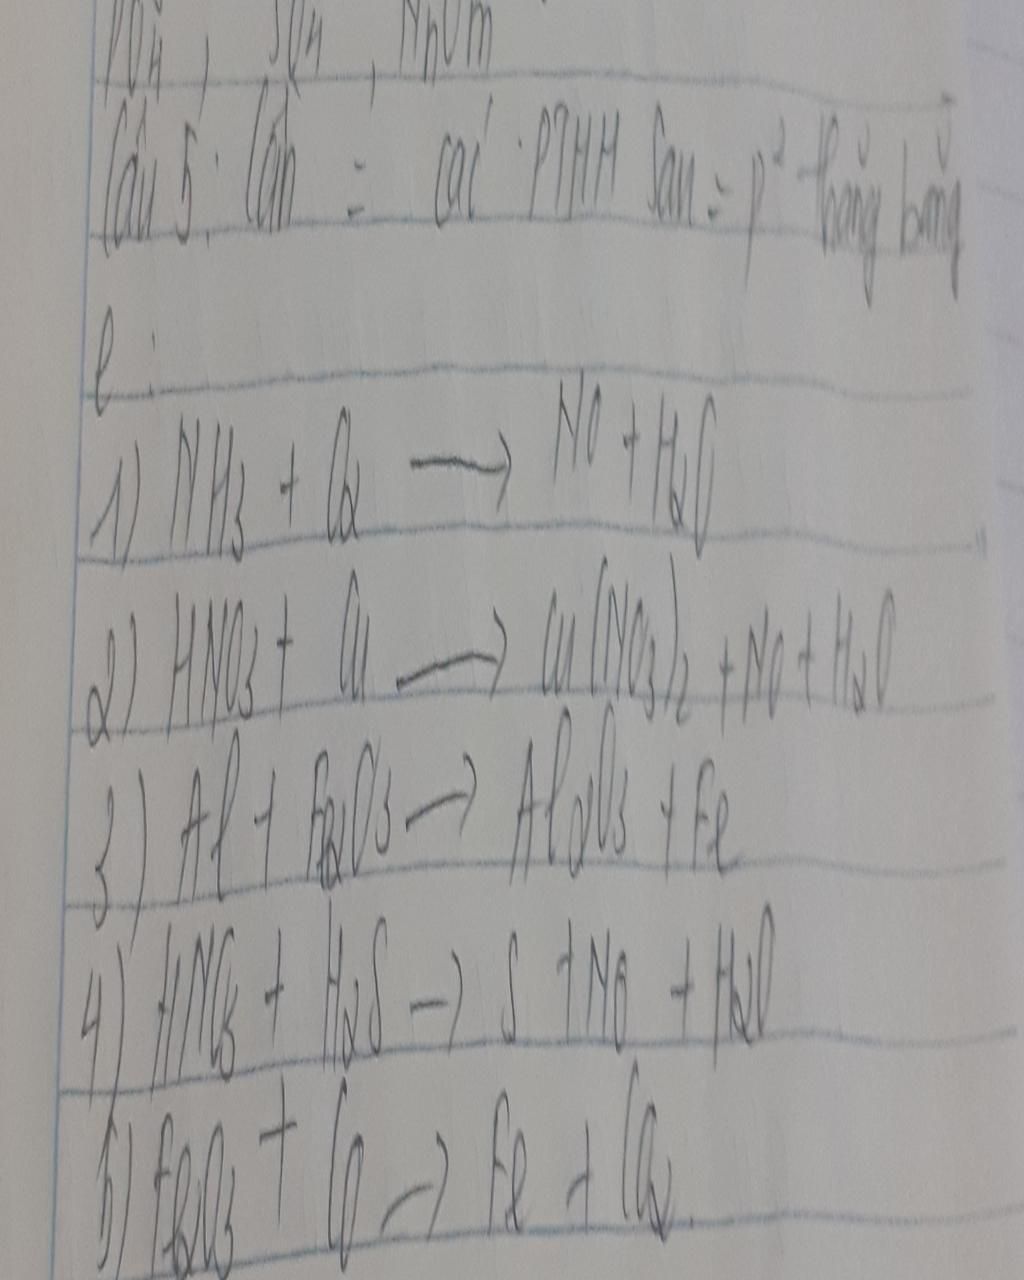 Câu 5. Cân = các PTHH sau = p² thăng bằng
e :
1) NH3 + O2 → NO + H2O
2) HNO3 + Cu → Cu(NO3)2 + NO + H2O
3) Al + Fe2O3 → Al2O3 + Fe
4) HNO3 + H2S → S + NO + H2O
5) Fe2O3 + CO → Fe + CO2